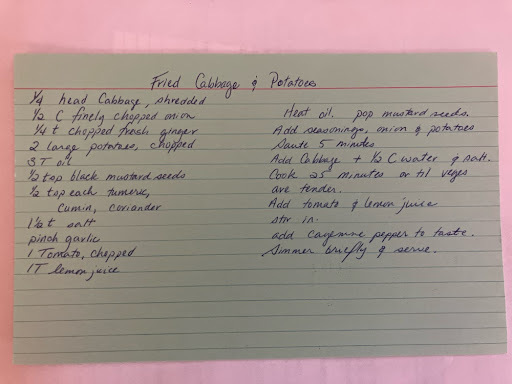 Fried Cabbage & Potatoes
1/4 head Cabbage, shredded
1/2 C finely chopped onion
1/4 t chopped fresh ginger
2 large potatoes, chopped
3 T oil
1/2 tsp black mustard seeds
1/2 tsp each tumeric,
Cumin, coriander
1 1/2 t salt
pinch garlic
1 Tomato, chopped
1 T lemon juice
Heat oil. pop mustard seeds.
Add seasonings, onion & potatoes
Saute 5 minutes
Add Cabbage + 1/2 C water & salt.
Cook 25 minutes or til veges
are tender.
Add tomato & lemon juice
stir in.
add cayenne pepper to taste.
Simmer briefly & serve.